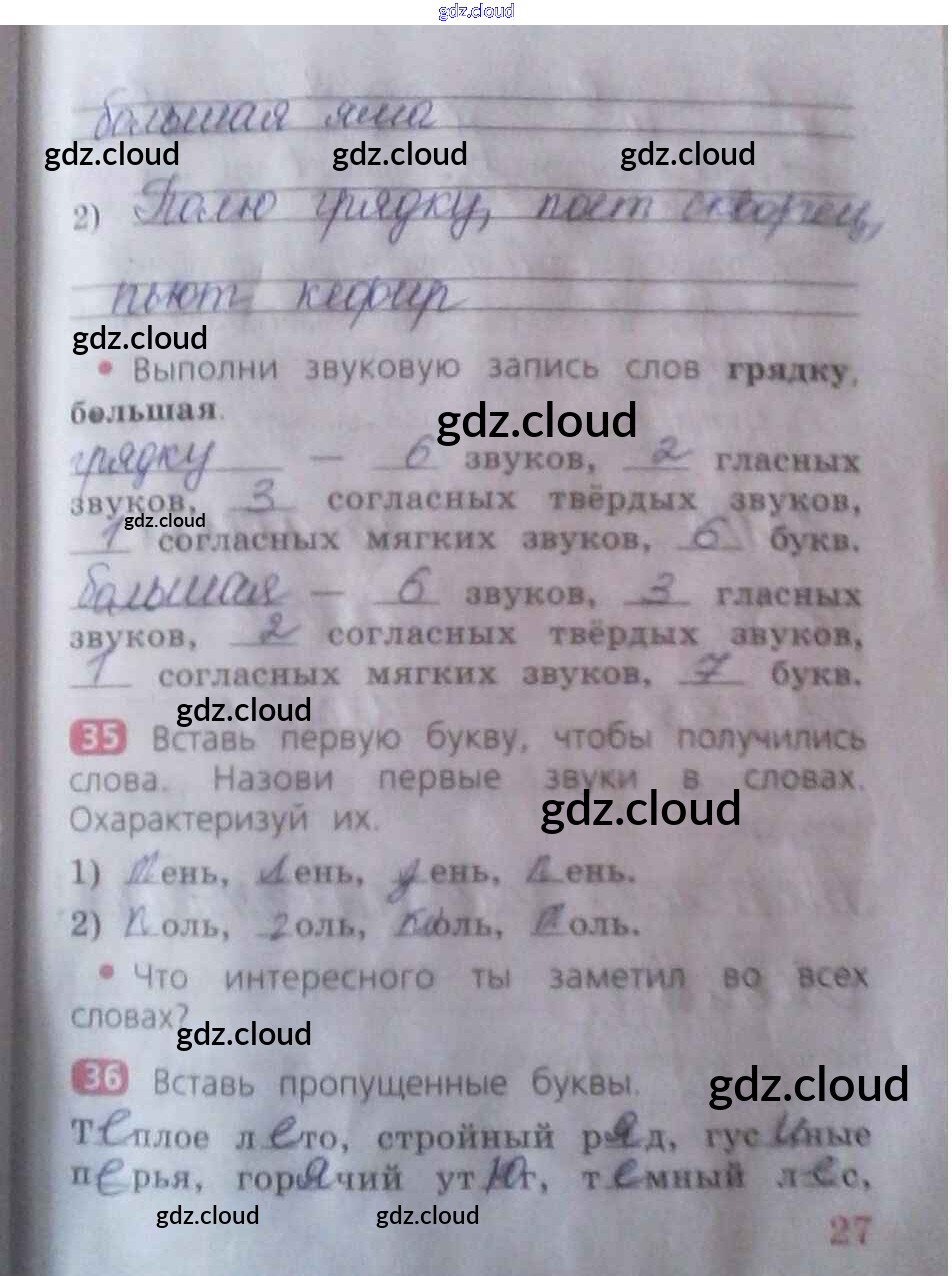 gdz.cloud
большая яма
gdz.cloud gdz.cloud gdz.cloud
2) Полю грядку, поёт скворец,
пьют кефир
gdz.cloud
• Выполни звуковую запись слов грядку,
большая.
gdz.cloud
грядку — 6 звуков, 2 гласных
звуков, 3 согласных твёрдых звуков,
gdz.cloud
1 согласных мягких звуков, 6 букв.
большая — 6 звуков, 3 гласных
звуков, 2 согласных твёрдых звуков,
1 согласных мягких звуков, 7 букв.
gdz.cloud
35 Вставь первую букву, чтобы получились
слова. Назови первые звуки в словах.
gdz.cloud
Охарактеризуй их.
1) ень, ень, ень, ень.
2) оль, голь, оль, оль.
• Что интересного ты заметил во всех
словах?
gdz.cloud
36 Вставь пропущенные буквы.
gdz.cloud
Теплое лето, стройный ряд, гусиные
перья, горячий утюг, темный лес,
gdz.cloud gdz.cloud
27